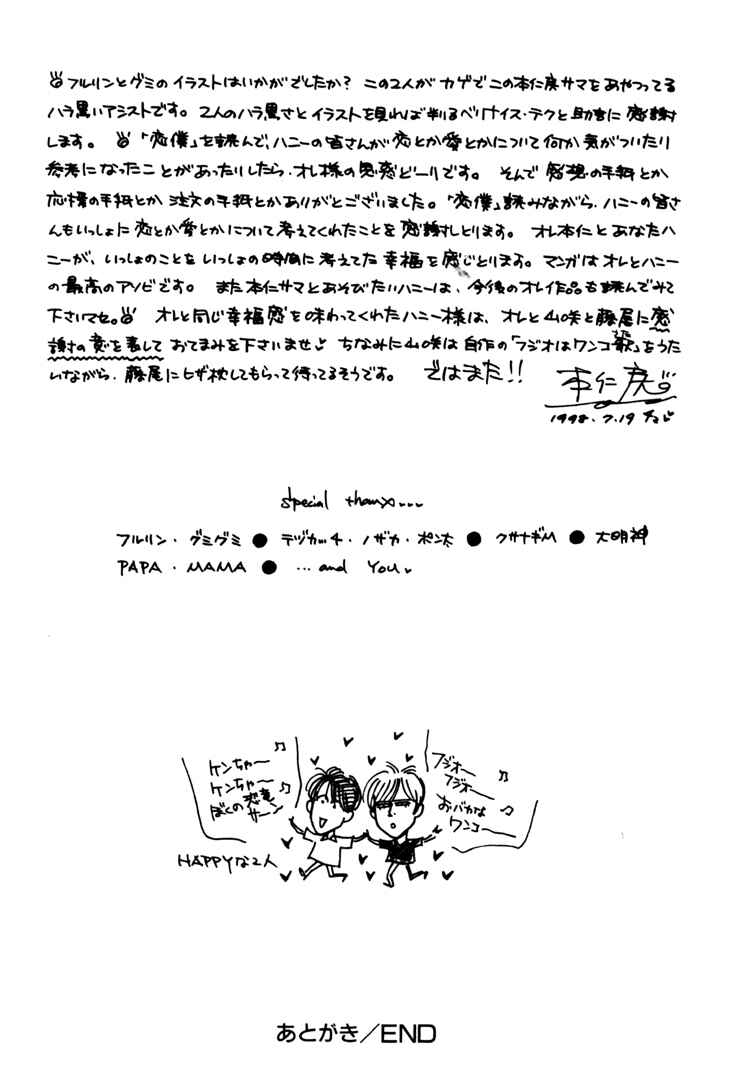 フルリンとグミのイラストはいかがでしたか? この2人がカゲでこの本仁戻サマをあやつってる
ハラ黒いアシストです。 2人のハラ黒さとイラストを見れば判るベリナイス・テクと助言に感謝
します。 「恋僕」を読んで、ハニーの皆さんが恋とか愛とかについて何か気がついたり
参考になったことがあったりしたら、オレ様の思惑どーりです。 そんで感想の手紙とか
応援の手紙とか注文の手紙とかありがとございました。「恋僕」読みながら、ハニーの皆さ
んもいっしょに恋とか愛とかについて考えてくれたことを感謝しとります。 オレ本仁とあなたハ
ニーが、いっしょのことをいっしょの時間に考えてた幸福を感じとります。マンガはオレとハニー
の最高のアソビです。 また本仁サマとあそびたいハニーは、今後のオレ作品も読んでみて
下さいマセ。 オレと同じ幸福感を味わってくれたハニー様は、オレと山咲と藤尾に感
謝の意を表して おてまみを下さいませ♪ ちなみに山咲は自作の「フジオはワンコ歌」をうた
うた
いながら、藤尾にヒザ枕してもらって待ってるそうです。 ではまた!! 本仁戻
1998.7.19
special thanx...
フルリン・グミグミ ● テヅカッチ・ノザカ・ポン太 ● クサナギM ● 大明神
PAPA・MAMA ● ...and YOU.
ケンちゃ〜
ケンちゃ〜♪
ぼくの恋竜
サーン
フジオ〜
フジオ〜♪
おバカな♪
ワンコ〜
HAPPYな2人
あとがき/END